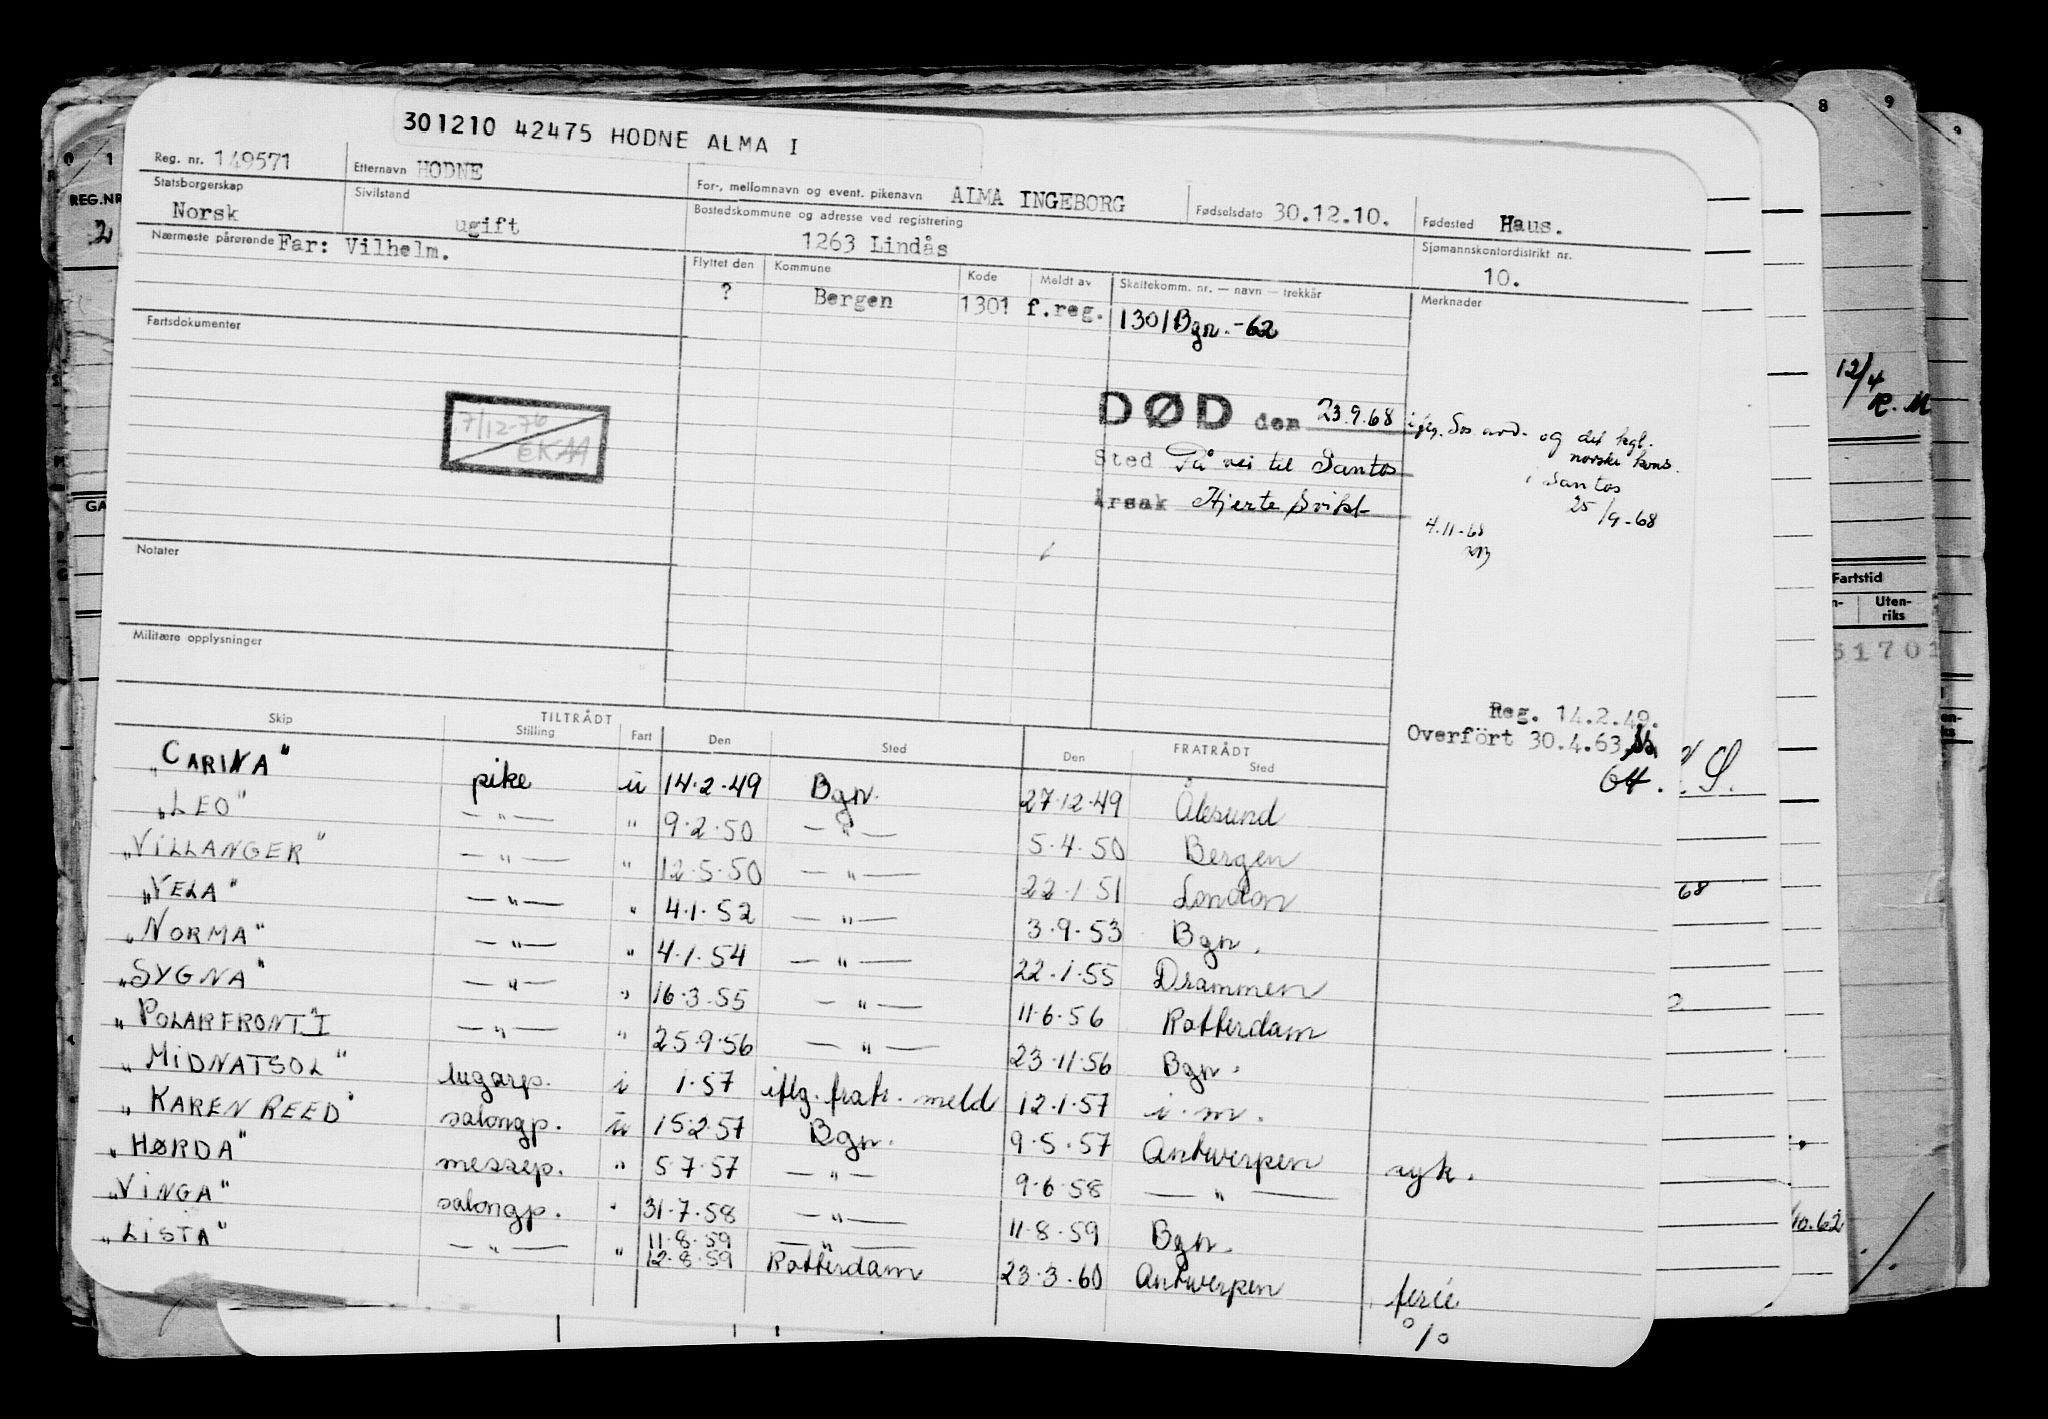 301210 42475 HODNE ALMA I
Reg. nr. 149571 Etternavn HODNE For-, mellomnavn og event. pikenavn ALMA INGEBORG Fødselsdato 30.12.10. Fødested Haus.
Statsborgerskap Norsk Sivilstand ugift Bostedskommune og adresse ved registrering 1263 Lindås Sjømannskontordistrikt nr. 10.
Nærmeste pårørende Far: Vilhelm.
Flyttet den Kommune Kode Meldt av Skattekomm. nr. — navn — trekkår Merknader
? Bergen 1301 f.reg. 1301 Bgn. -62
Fartsdokumenter
7/12-76
EKAA
DØD den 23.9.68 og det kgl.
norske kons.
Sted På vei til Santos i Santos
25/9-68
Årsak Hjertesvikt
4.11-68
Notater
Militære opplysninger
Reg. 14.2.49.
Overført 30.4.63
64.
TILTRÅDT FRATRÅDT
Skip Stilling Fart Den Sted Den Sted
"CARINA" pike u 14.2.49 Bgn. 27.12.49 Ålesund
"LEO" — " — " 9.2.50 — " — 5.4.50 Bergen
"VILLANGER" — " — " 12.5.50 — " — 22.1.51 London
"VELA" — " — " 4.1.52 — " — 3.9.53 Bgn.
"NORMA" — " — " 4.1.54 — " — 22.1.55 Drammen
"SYGNA" — " — " 16.3.55 — " — 11.6.56 Rotterdam
"POLARFRONT I" — " — " 25.9.56 — " — 23.11.56 Bgn.
"MIDNATSOL" lugarp. i 1.57 iflg. fratr. meld 12.1.57 i.m.
"KAREN REED" salongp. u 15.2.57 Bgn. 9.5.57 Antwerpen syk.
"HØRDA" messep. " 5.7.57 — " — 9.6.58 — " —
"VINGA" salongp. " 31.7.58 — " — 11.8.59 Bgn.
11.8.59 — " —
"LISTA" — " — " 12.8.59 Rotterdam 23.3.60 Antwerpen ferie
o/o
REG.NR
0 1
8 9
9
12/4
R. M
Fartstid
Uten-
riks
51701
S.
68
10.62